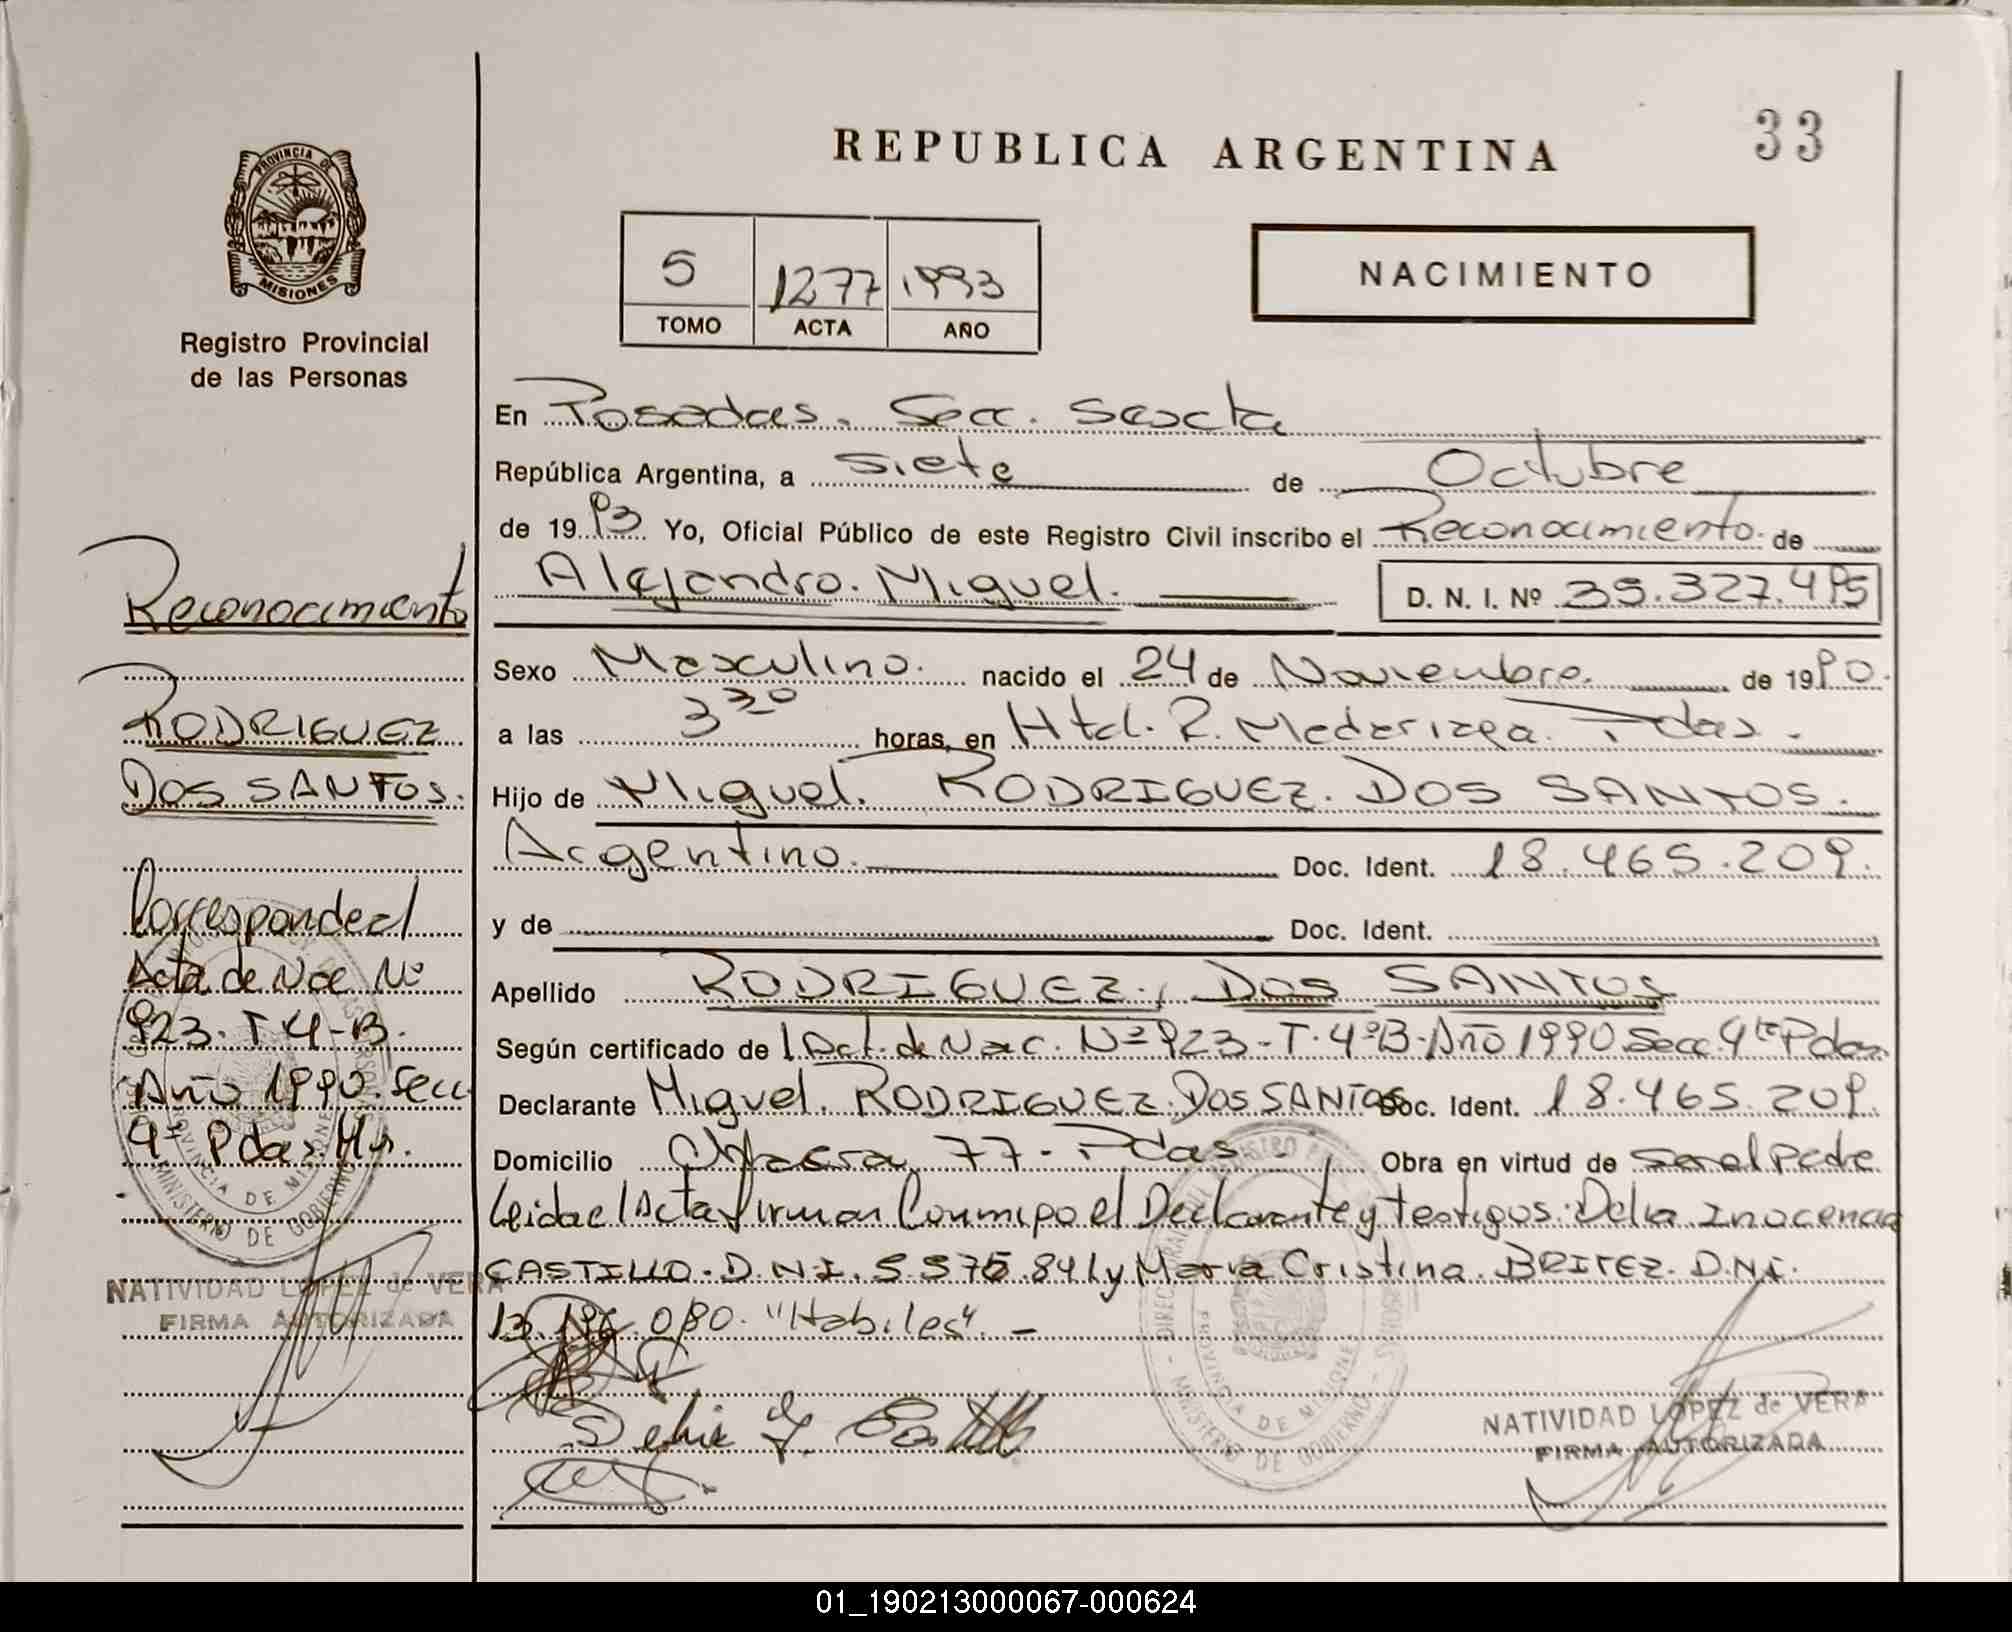 REPUBLICA ARGENTINA
33
PROVINCIA DE
MISIONES
Registro Provincial
de las Personas
5 1277 1993
TOMO ACTA AÑO
NACIMIENTO
En Posadas. Secc. Sexta
República Argentina, a siete de Octubre
de 1993 Yo, Oficial Público de este Registro Civil inscribo el Reconocimiento de
Alejandro Miguel. D. N. I. Nº 35.327.495
Sexo Masculino. nacido el 24 de Noviembre. de 1990.
a las 3 30 horas, en Htal. R. Madariaga. Pdas.
Hijo de Miguel. RODRIGUEZ. DOS SANTOS.
Argentino. Doc. Ident. 18.465.209.
y de Doc. Ident.
Apellido RODRIGUEZ, DOS SANTOS
Según certificado de Act. de Nac. Nº 923-T.4ºB-Año 1990 Secc. 4ta Pdas.
Declarante Miguel. RODRIGUEZ. DOS SANTOS Doc. Ident. 18.465.209.
Domicilio 77-Pdas. Obra en virtud de ser el Padre
Leida el Acta firman Conmigo el Declarante y testigos: Delia Inocencia
CASTILLO. D.N.I. 5 575 841 y Maria Cristina. BRITEZ. D.N.I.
13. 080. "Habiles". –
Delia
NATIVIDAD LOPEZ de VERA
FIRMA AUTORIZADA
Reconocimiento
RODRIGUEZ
DOS SANTOS.
Corresponde al
Acta de Nac Nº
923-T 4-B.
Año 1990. Secc
4ª Pdas. Mns.
NATIVIDAD LOPEZ de VERA
FIRMA AUTORIZADA
PROVINCIA DE MISIONES
MINISTERIO DE GOBIERNO
01_190213000067-000624